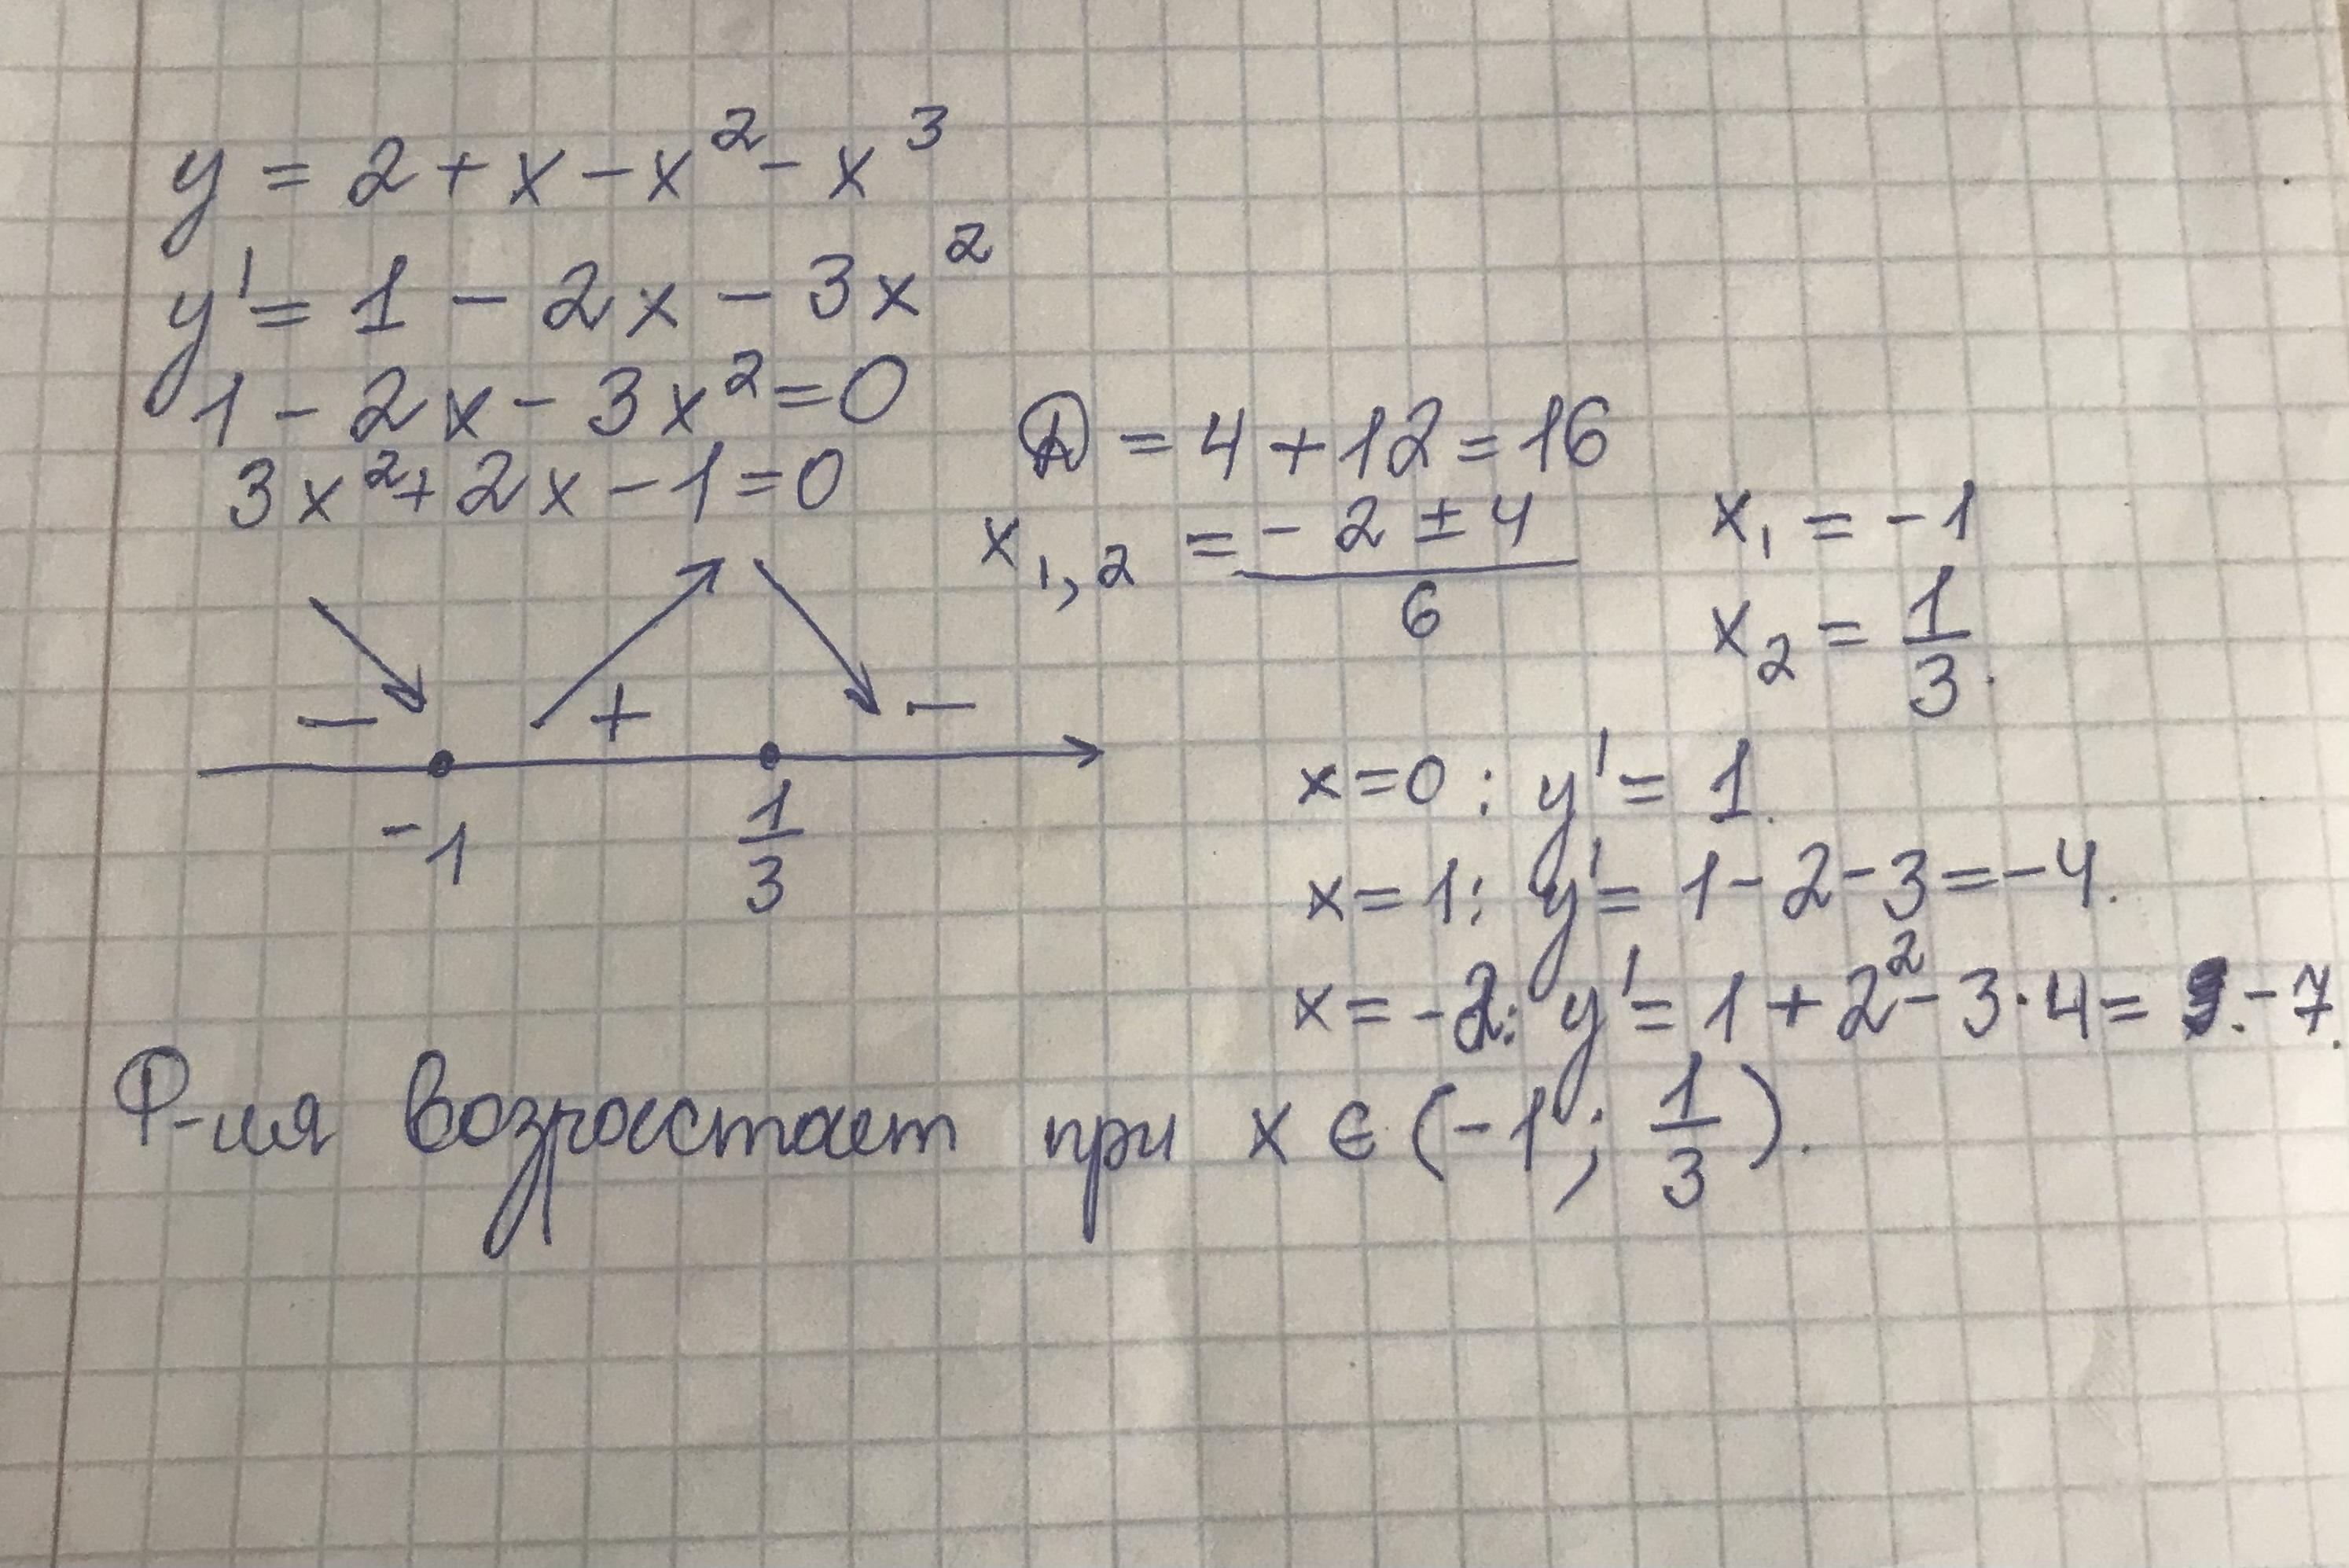 y = 2 + x - x² - x³
y' = 1 - 2x - 3x²
1 - 2x - 3x² = 0
3x² + 2x - 1 = 0
D = 4 + 12 = 16
x₁,₂ = (-2 ± 4)/6
x₁ = -1
x₂ = 1/3.
- + -
-1 1/3
x = 0 : y' = 1.
x = 1 : y' = 1 - 2 - 3 = -4.
x = -2 : y' = 1 + 2² - 3·4 = -7.
Ф-ия возрастает при x ∈ (-1 ; 1/3).